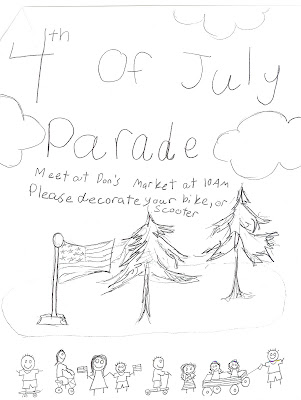 4th Of July
Parade
Meet at Don's Market at 10AM
Please decorate your bike, or
Scooter